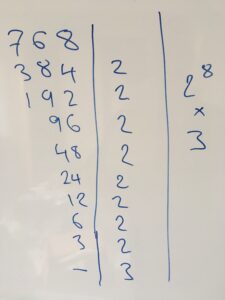 768
384 2
192 2
96 2
48 2
24 2
12 2
6 2
3 2
- 3
2⁸
×
3